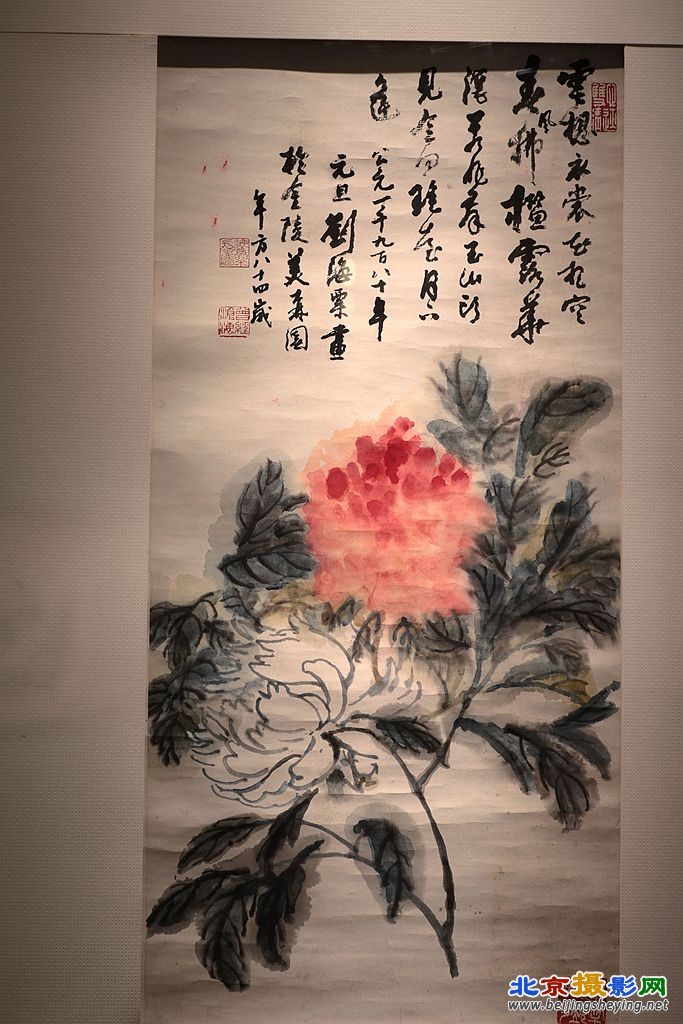 雲想衣裳花想容
春風拂檻露華
濃若非群玉山頭
見會向瑤臺月下
逢 公元一千九百八十年
元旦劉海粟畫
於金陵美森園
年方八十四歲
北京摄影网
www.beijingsheying.net